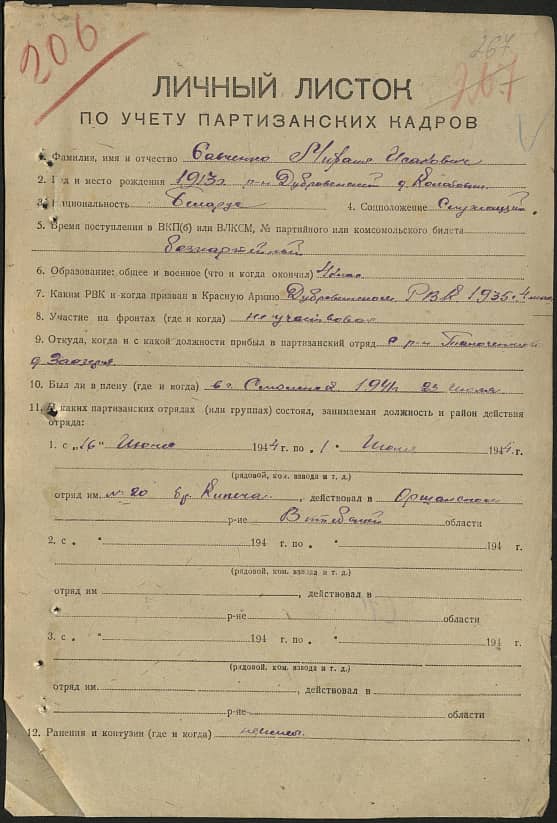 206
267
267
ЛИЧНЫЙ ЛИСТОК
ПО УЧЕТУ ПАРТИЗАНСКИХ КАДРОВ
1. Фамилия, имя и отчество Савченко Исакович
2. Год и место рождения 1913 г р-н Дубровенский д.
3. Национальность Беларус 4. Соцположение Служащий
5. Время поступления в ВКП(б) или ВЛКСМ, № партийного или комсомольского билета
безпартейный
6. Образование: общее и военное (что и когда окончил) 4 клас
7. Каким РВК и когда призван в Красную Армию РВК 1935
8. Участие на фронтах (где и когда) не участвовал
9. Откуда, когда и с какой должности прибыл в партизанский отряд с р-н
д.
10. Был ли в плену (где и когда) в г. 1941 г 23 июля
11. В каких партизанских отрядах (или группах) состоял, занимаемая должность и район действия
отряда:
1. с „16" Июня 1944 г. по „1" Июля 1944 г.
(рядовой, ком. взвода и т. д.)
отряд им. № 20 бр. , действовал в Оршанском
р-не Витебской области
2. с „ " 194 г. по „ " 194 г.
(рядовой, ком. взвода и т. д.)
отряд им , действовал в
р-не области
3. с „ " 194 г. по „ " 194 г.
(рядовой, ком. взвода и т. д.)
отряд им. , действовал в
р-не области
12. Ранения и контузии (где и когда)